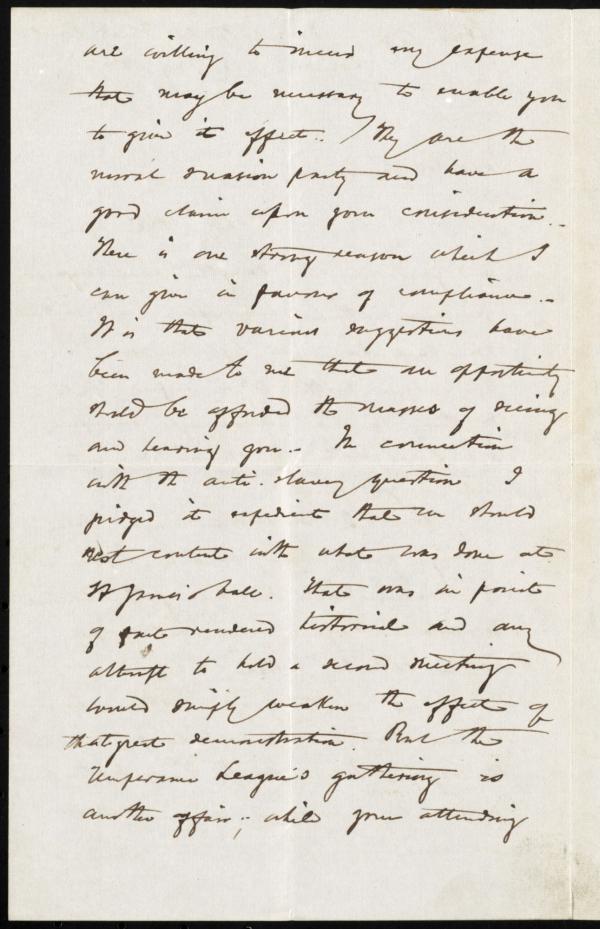 are willing to incur any expense
that may be necessary to enable you
to give it effect. They are the
moral suasion party and have a
good claim upon your consideration.
There is one strong reason which I
can give in favour of compliance.
It is that various suggestions have
been made to me that an opportunity
should be afforded the masses of seeing
and hearing you. In connection
with the anti-slavery question I
judged it expedient that we should
rest content with what was done at
St James's hall. That was in point
of fact rendered historical and any
attempt to hold a second meeting
would simply weaken the effect of
that great demonstration. But the
Temperance League's gathering is
another affair; while your attending